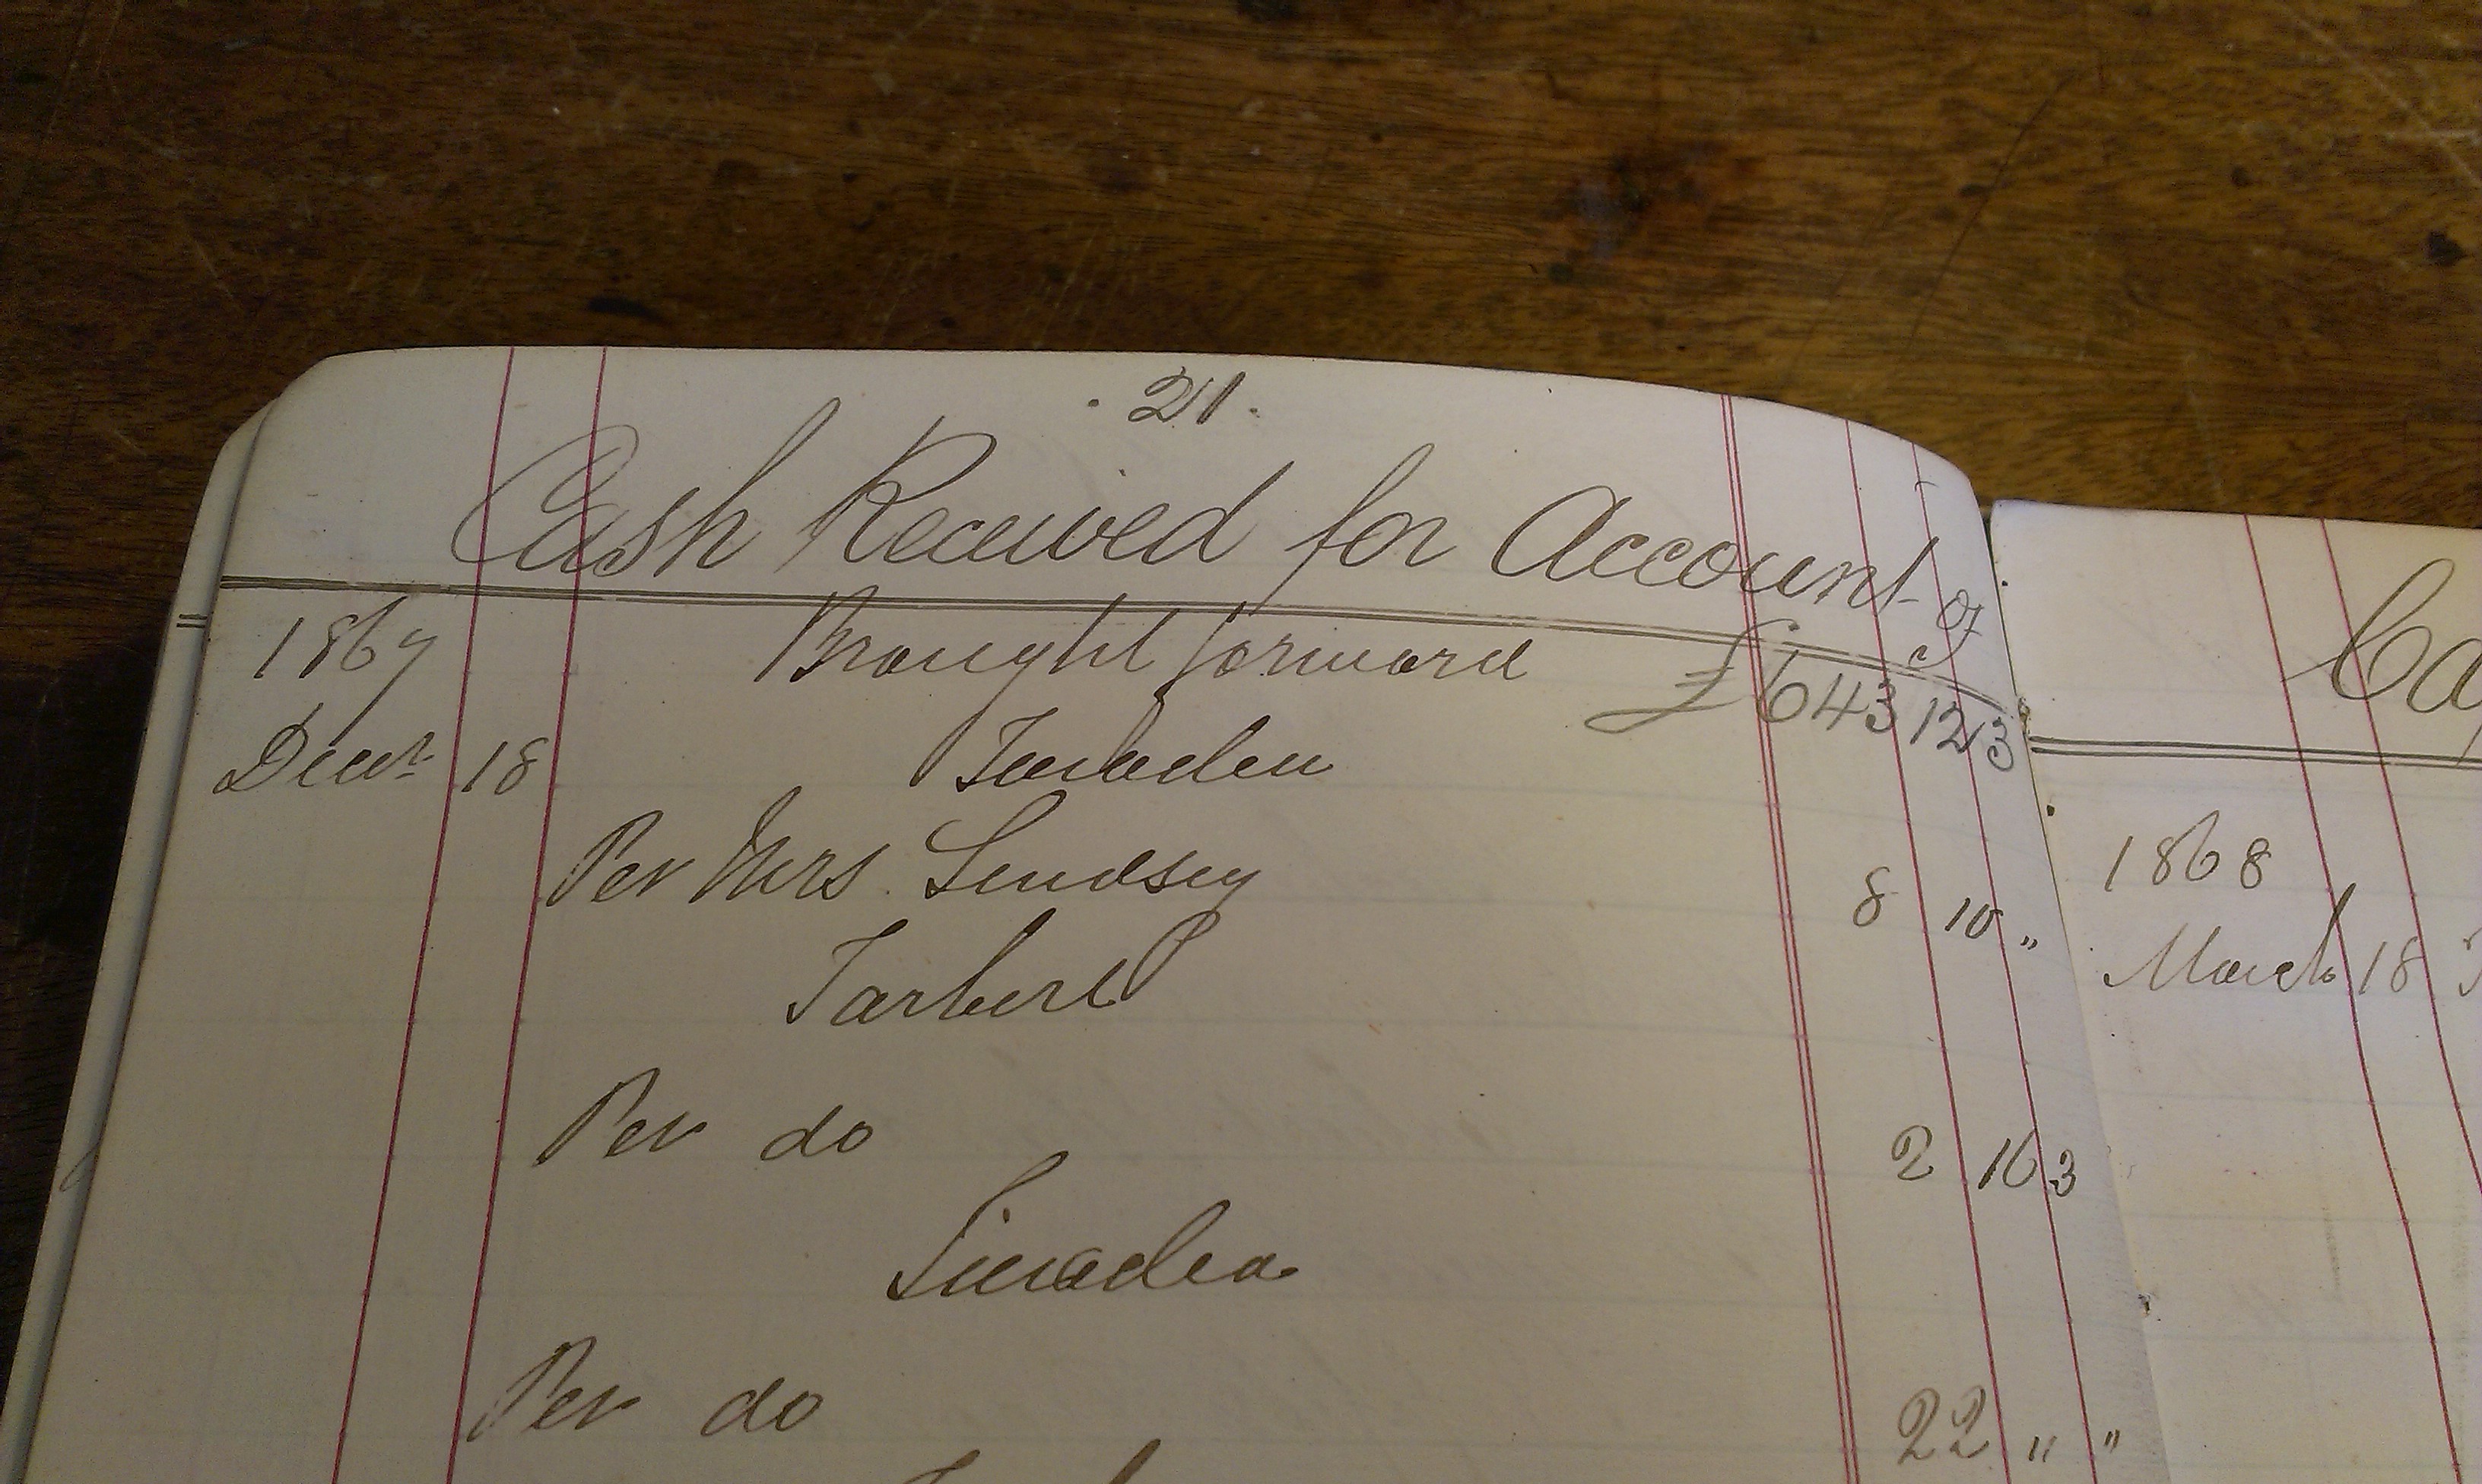 . 21 .
Cash Received for Account of
1867 Brought forward £643 12 3
Decr 18
Per Mrs. Lindsey 8 10 "
Tarbert
Per do 2 16 3
Per do 22 " "
Ca
1868
March 18